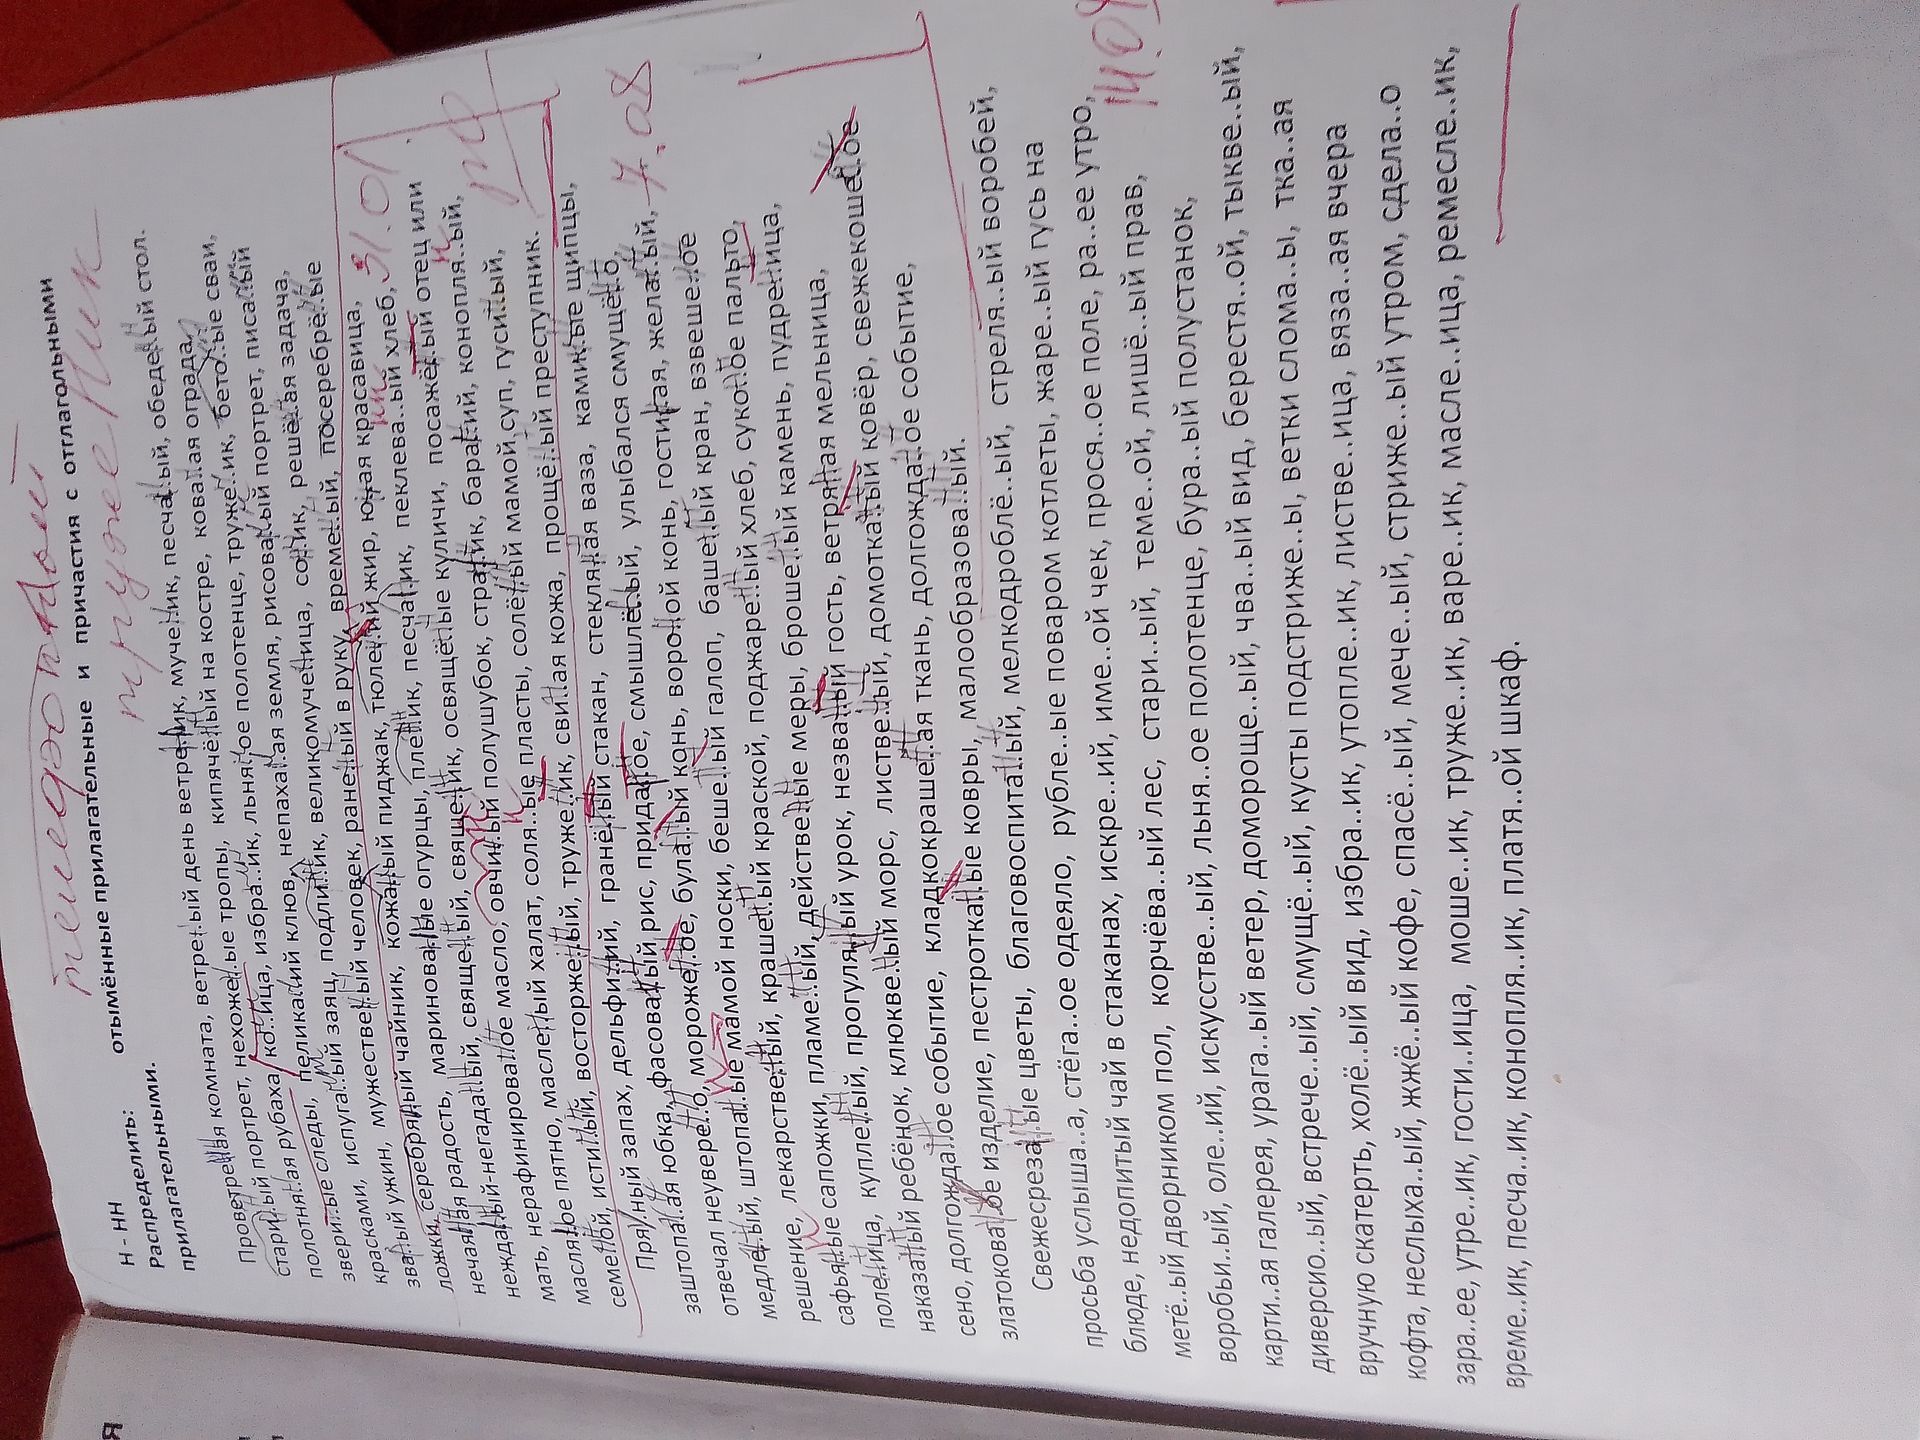 телефонный
труженник
Н - НН
Распределить: отымённые прилагательные и причастия с отглагольными
прилагательными.
Проветре..ая комната, ветре..ый день ветре..ик, муче..ик, песча..ый, обеде..ый стол.
стари..ый портрет, нехоже..ые тропы, кипячё..ый на костре, кова..ая ограда,
полотня..ая рубаха, ко..ица, избра..ик, льня..ое полотенце, труже..ик, бето..ые сваи,
звери..ые следы, пелика..ий клюв, непаха..ая земля, рисова..ый портрет, писа..ый
красками, испуга..ый заяц, подли..ик, великомуче..ица, со..ик, решё..ая задача,
зва..ый ужин, мужестве..ый человек, ране..ый в руку, време..ый, посеребрё..ые
ложки, серебря..ый чайник, кожа..ый пиджак, тюле..ий жир, ю..ая красавица, 31.01
нечая..ая радость, маринова..ые огурцы, пле..ик, песча..ик, пеклева..ый хлеб,
нежда..ый-негада..ый, свяще..ый, свяще..ик, освящё..ые куличи, посажё..ый отец или
мать, нерафинирова..ое масло, овчи..ый полушубок, стра..ик, бара..ий, конопля..ый,
масля..ое пятно, масле..ый халат, соля..ые пласты, солё..ый мамой суп, гуси..ый,
семе..ой, исти..ый, восторже..ый, труже..ик, сви..ая кожа, прощё..ый преступник.
Пря..ный запах, дельфи..ий, гранё..ый стакан, стекля..ая ваза, ками..ые щипцы,
заштопа..ая юбка, фасова..ый рис, прида..ое, смышлё..ый, улыбался смущё..о,
отвечал неувере..о, мороже..ое, була..ый конь, воро..ой конь, гости..ая, жела..ый, 7.02
медле..ый, штопа..ые мамой носки, беше..ый галоп, баше..ый кран, взвеше..ое
решение, лекарстве..ый, краше..ый краской, поджаре..ый хлеб, суко..ое пальто,
сафья..ые сапожки, пламе..ый, действе..ые меры, броше..ый камень, пудре..ица,
поле..ица, купле..ый, прогуля..ый урок, незва..ый гость, ветря..ая мельница,
наказа..ый ребёнок, клюкве..ый морс, листве..ый, домотка..ый ковёр, свежекоше..ое
сено, долгожда..ое событие, кладкокраше..ая ткань, долгожда..ое событие,
златокова..ое изделие, пестротка..ые ковры, малообразова..ый.
Свежесреза..ые цветы, благовоспита..ый, мелкодроблё..ый, стреля..ый воробей,
просьба услыша..а, стёга..ое одеяло, рубле..ые поваром котлеты, жаре..ый гусь на
блюде, недопитый чай в стаканах, искре..ий, име..ой чек, прося..ое поле, ра..ее утро,
метё..ый дворником пол, корчёва..ый лес, стари..ый, теме..ой, лишё..ый прав,
воробьи..ый, оле..ий, искусстве..ый, льня..ое полотенце, бура..ый полустанок,
карти..ая галерея, урага..ый ветер, доморощe..ый, чва..ый вид, берестя..ой, тыкве..ый,
диверсио..ый, встрече..ый, смущё..ый, кусты подстриже..ы, ветки слома..ы, тка..ая
вручную скатерть, холё..ый вид, избра..ик, утопле..ик, листве..ица, вяза..ая вчера
кофта, неслыха..ый, жжё..ый кофе, спасё..ый, мече..ый, стриже..ый утром, сдела..о
зара..ее, утре..ик, гости..ица, моше..ик, труже..ик, варе..ик, масле..ица, ремесле..ик,
време..ик, песча..ик, конопля..ик, платя..ой шкаф.